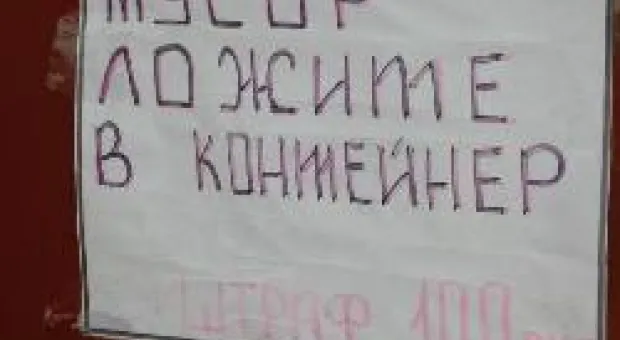 МУСОР
ЛОЖИТЕ
В КОНТЕЙНЕР
ШТРАФ 100